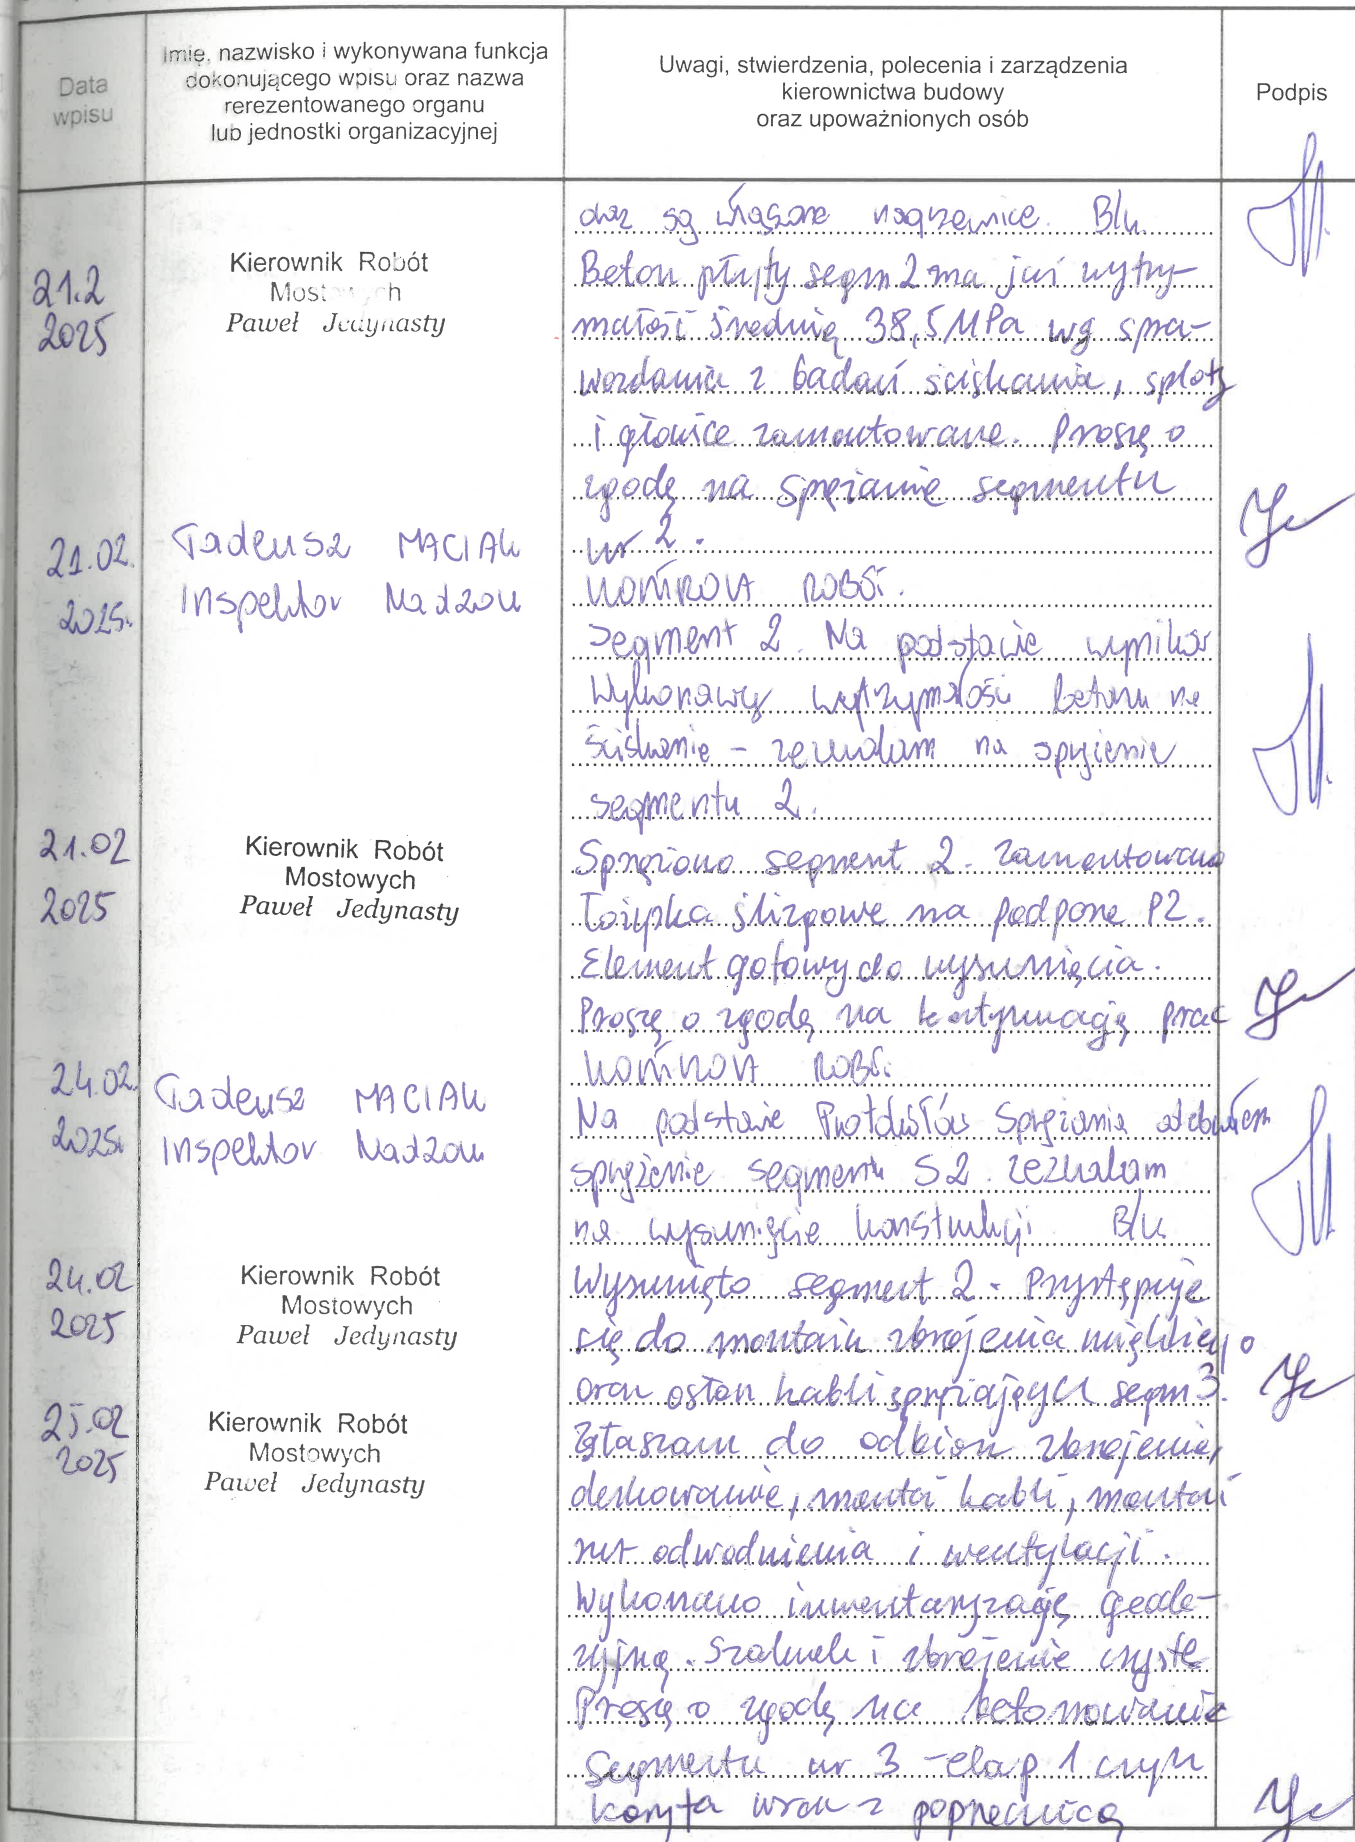 Data
wpisu
Imię, nazwisko i wykonywana funkcja
dokonującego wpisu oraz nazwa
rerezentowanego organu
lub jednostki organizacyjnej
Uwagi, stwierdzenia, polecenia i zarządzenia
kierownictwa budowy
oraz upoważnionych osób
Podpis
oraz są włączone nagrzewnice. B/u.
21.2
2025
Kierownik Robót
Mostowych
Paweł Jedynasty
Beton płyty segm 2 ma już wytrzy-
małość średnią 38,5 MPa wg spra-
wozdania z badań ściskania, sploty
i głowice zamontowane. Proszę o
zgodę na sprężanie segmentu
nr 2.
21.02.
2025r.
Tadeusz MACIAK
Inspektor Nadzoru
KONTROLA ROBÓT.
Segment 2. Na podstawie wyników
Wykonawcy wytrzymałości betonu na
ściskanie - zezwalam na sprężenie
segmentu 2.
21.02
2025
Kierownik Robót
Mostowych
Paweł Jedynasty
Sprężono segment 2. Zamontowano
łożyska ślizgowe na podporze P2.
Element gotowy do wysunięcia.
Proszę o zgodę na kontynuację prac
24.02.
2025r.
Tadeusz MACIAK
Inspektor Nadzoru
KONTROLA ROBÓT.
Na podstawie Protokółów Sprężania odebrałem
sprężenie segmentu S2. Zezwalam
na wysunięcie konstrukcji B/u
24.02
2025
Kierownik Robót
Mostowych
Paweł Jedynasty
Wysunięto segment 2. Przystępuje
się do montażu zbrojenia miękkiego
oraz osłon kabli sprężających segm 3.
25.02
2025
Kierownik Robót
Mostowych
Paweł Jedynasty
Zgłaszam do odbioru zbrojenie,
deskowanie, montaż kabli, montaż
rur odwodnienia i wentylacji.
Wykonano inwentaryzację geode-
zyjną. Szalunek i zbrojenie czyste
Proszę o zgodę na betonowanie
Segmentu nr 3 - etap 1 czyli
koryta wraz z poprzecznicą